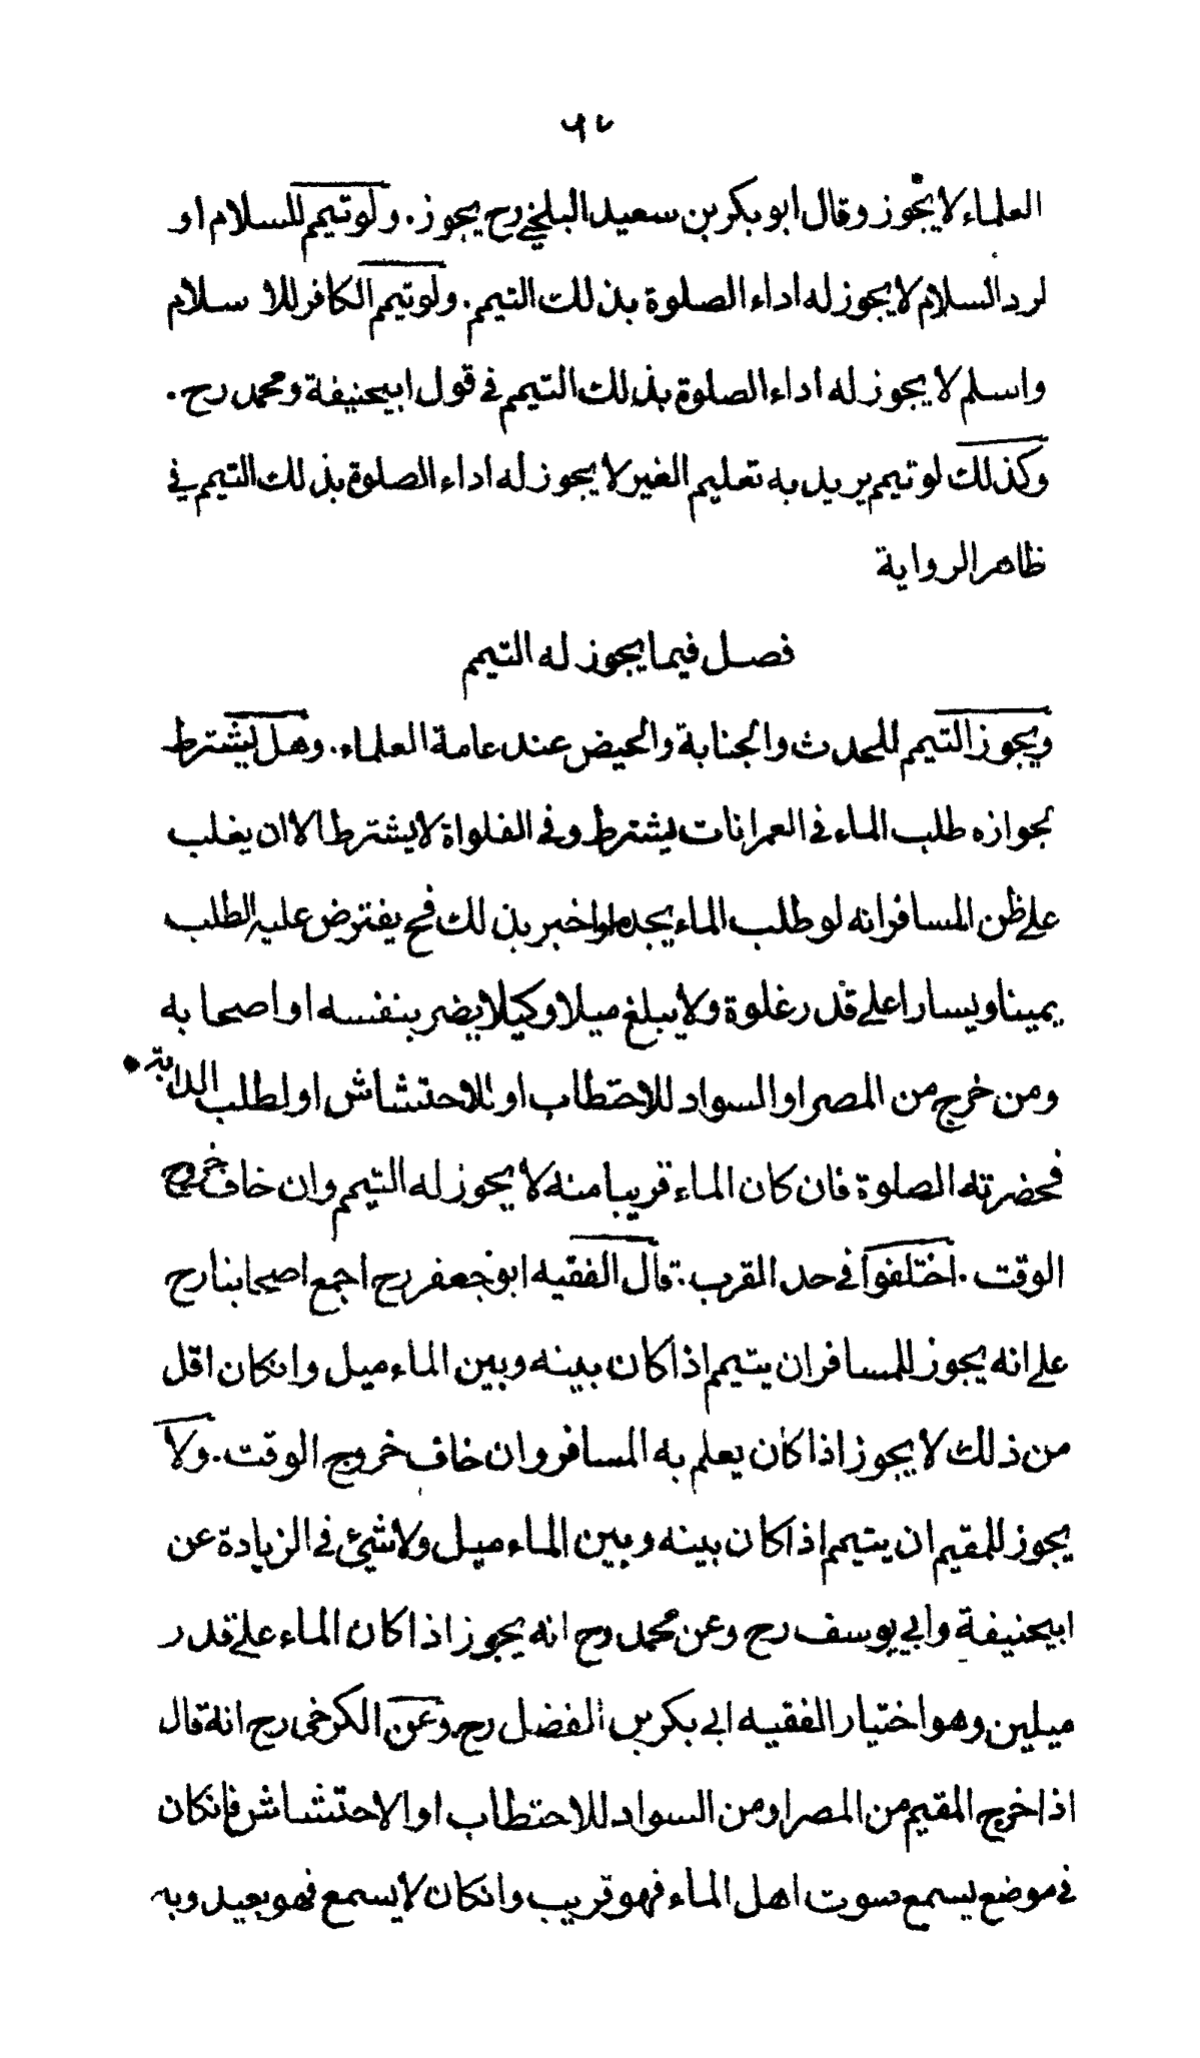 العلماء لا يجوز وقال ابو بكر بن سعيد البلخي رح يجوز. ولو تيمم للسلام او
لرد السلام لا يجوز له اداء الصلوة بذلك التيمم. ولو تيمم الكافر للاسلام
واسلم لا يجوز له اداء الصلوة بذلك التيمم في قول ابيحنيفة ومحمد رح.
وكذلك لو تيمم يريد به تعليم الغير لا يجوز له اداء الصلوة بذلك التيمم في
ظاهر الرواية
فصل فيما يجوز له التيمم
ويجوز التيمم للحدث والجنابة والحيض عند عامة العلماء. وهل يشترط
لجوازه طلب الماء في العمرانات يشترط وفي الفلواة لا يشترط الا ان يغلب
على ظن المسافر انه لو طلب الماء يجده او اخبر بذلك فح يفترض عليه الطلب
يمينا ويسارا على قدر غلوة ولا يبلغ ميلا وكيلا يضر بنفسه او اصحابه
ومن خرج من المصر او السواد للاحتطاب او للاحتشاش او لطلب الدابة.
فحضرته الصلوة فان كان الماء قريبا منه لا يجوز له التيمم وان خاف خروج
الوقت. اختلفوا في حد القرب. قال الفقيه ابو جعفر رح اجمع اصحابنا رح
على انه يجوز للمسافر ان يتيمم اذا كان بينه وبين الماء ميل وانكان اقل
من ذلك لا يجوز اذا كان يعلم به المسافر وان خاف خروج الوقت. ولا
يجوز للمقيم ان يتيمم اذا كان بينه وبين الماء ميل ولا شئ في الزيادة عن
ابيحنيفة وابي يوسف رح وعن محمد رح انه يجوز اذا كان الماء على قدر
ميلين وهو اختيار الفقيه ابي بكر بن الفضل رح. وعن الكرخي رح انه قال
اذا خرج المقيم من المصر او من السواد للاحتطاب او الاحتشاش فانكان
في موضع يسمع صوت اهل الماء فهو قريب وانكان لا يسمع فهو بعيد وبه